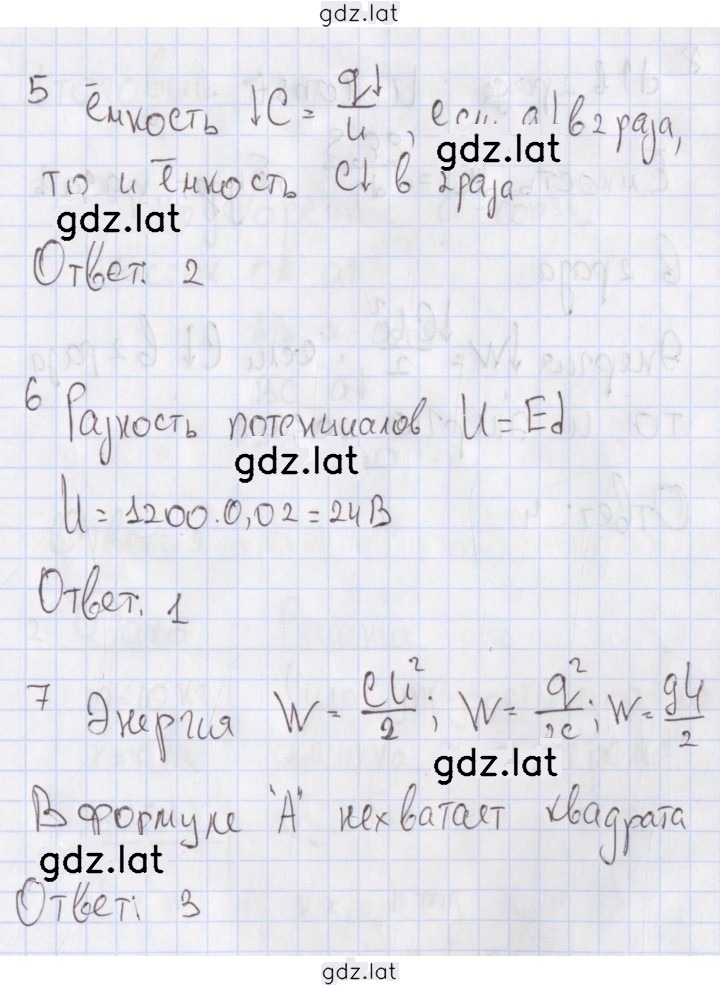 gdz.lat
5 Ёмкость ↓C = q↓/u, если q↓ в 2 раза,
gdz.lat
то и ёмкость C↓ в 2 раза
gdz.lat
Ответ: 2
6 Разность потенциалов U = Ed
gdz.lat
U = 1200·0,02 = 24 В
Ответ: 1
7 Энергия W = CU²/2; W = q²/2C; W = qU/2
gdz.lat
В формуле "А" нехватает квадрата
gdz.lat
Ответ: 3
gdz.lat